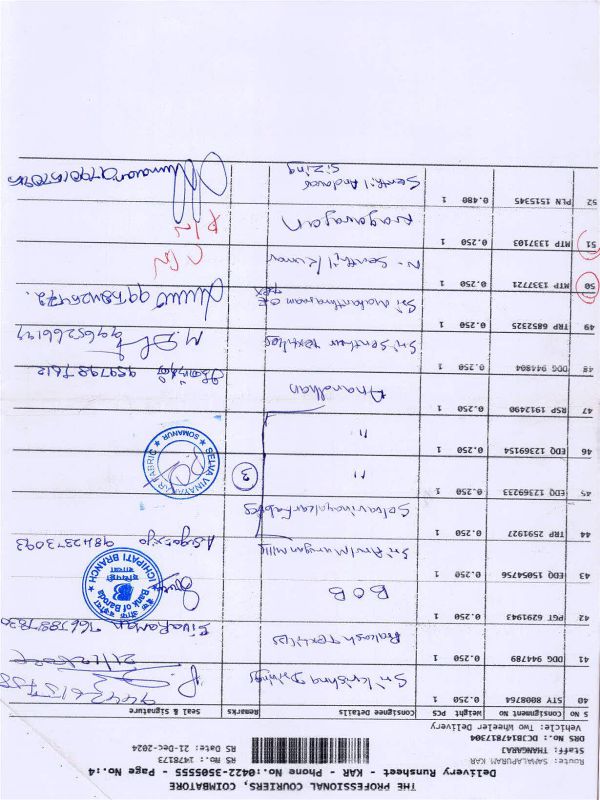 THE PROFESSIONAL COURIERS, COIMBATORE
Delivery Runsheet - KAR - Phone No:0422-3505555 - Page No.:4
Route: SAMALAPURAM KAR
Staff: THANGARAJ
DRS No.: DCJB147817304
Vehicle: Two Wheeler Delivery
RS No.: 1478173
RS Date: 21-Dec-2024
S NO Consignment No Weight PCS Consignee Details Remarks Seal & Signature
40 STY 8008764 0.250 1 Sri Krishna
41 DDG 944789 0.250 1 Prakash Textiles Sivaraman
42 PGT 6291943 0.250 1 BOB
बैंक ऑफ़ बड़ौदा Bank of Baroda ICHIPATI BRANCH
43 EDQ 15054756 0.250 1 Sri Arul Murugan mills 9842373093
44 TRP 2591927 0.250 1 Selvavinayakar Fabrics
45 EDQ 12369233 0.250 1 " 3
SELVA VINAYAKAR FABRIC SOMANUR
46 EDQ 12369154 0.250 1 "
47 RSP 1912490 0.250 1 Anandhan
48 DDG 944804 0.250 1 Sri Senthur Textiles 9965266147
49 TRP 6852325 0.250 1 Sri OE Tex
50 MTP 1337721 0.250 1 N. Senthil Kumar
51 MTP 1337103 0.250 1
52 PLN 1515345 0.480 1 Senthil Andavar Sizing